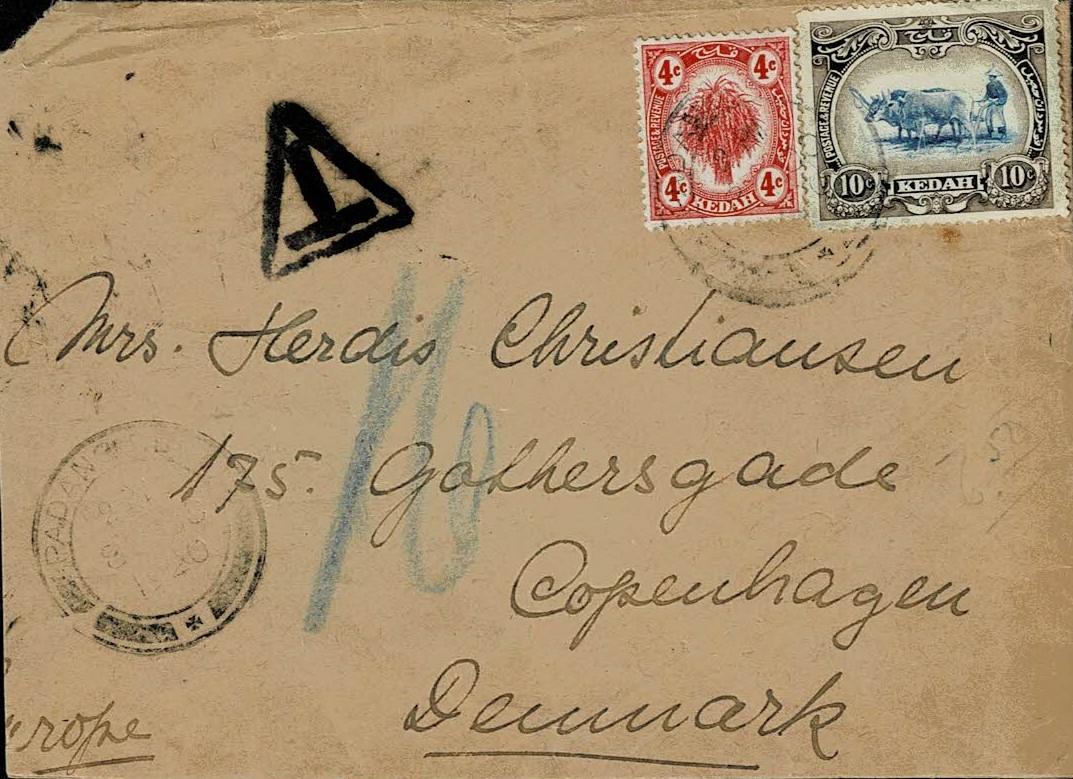 4c 4c
POSTAGE & REVENUE
4c 4c
KEDAH
POSTAGE & REVENUE
10c KEDAH 10c
T
Mrs. Herdis Christiansen
175. Gothersgade
Copenhagen
Denmark
16
PADANG
urope